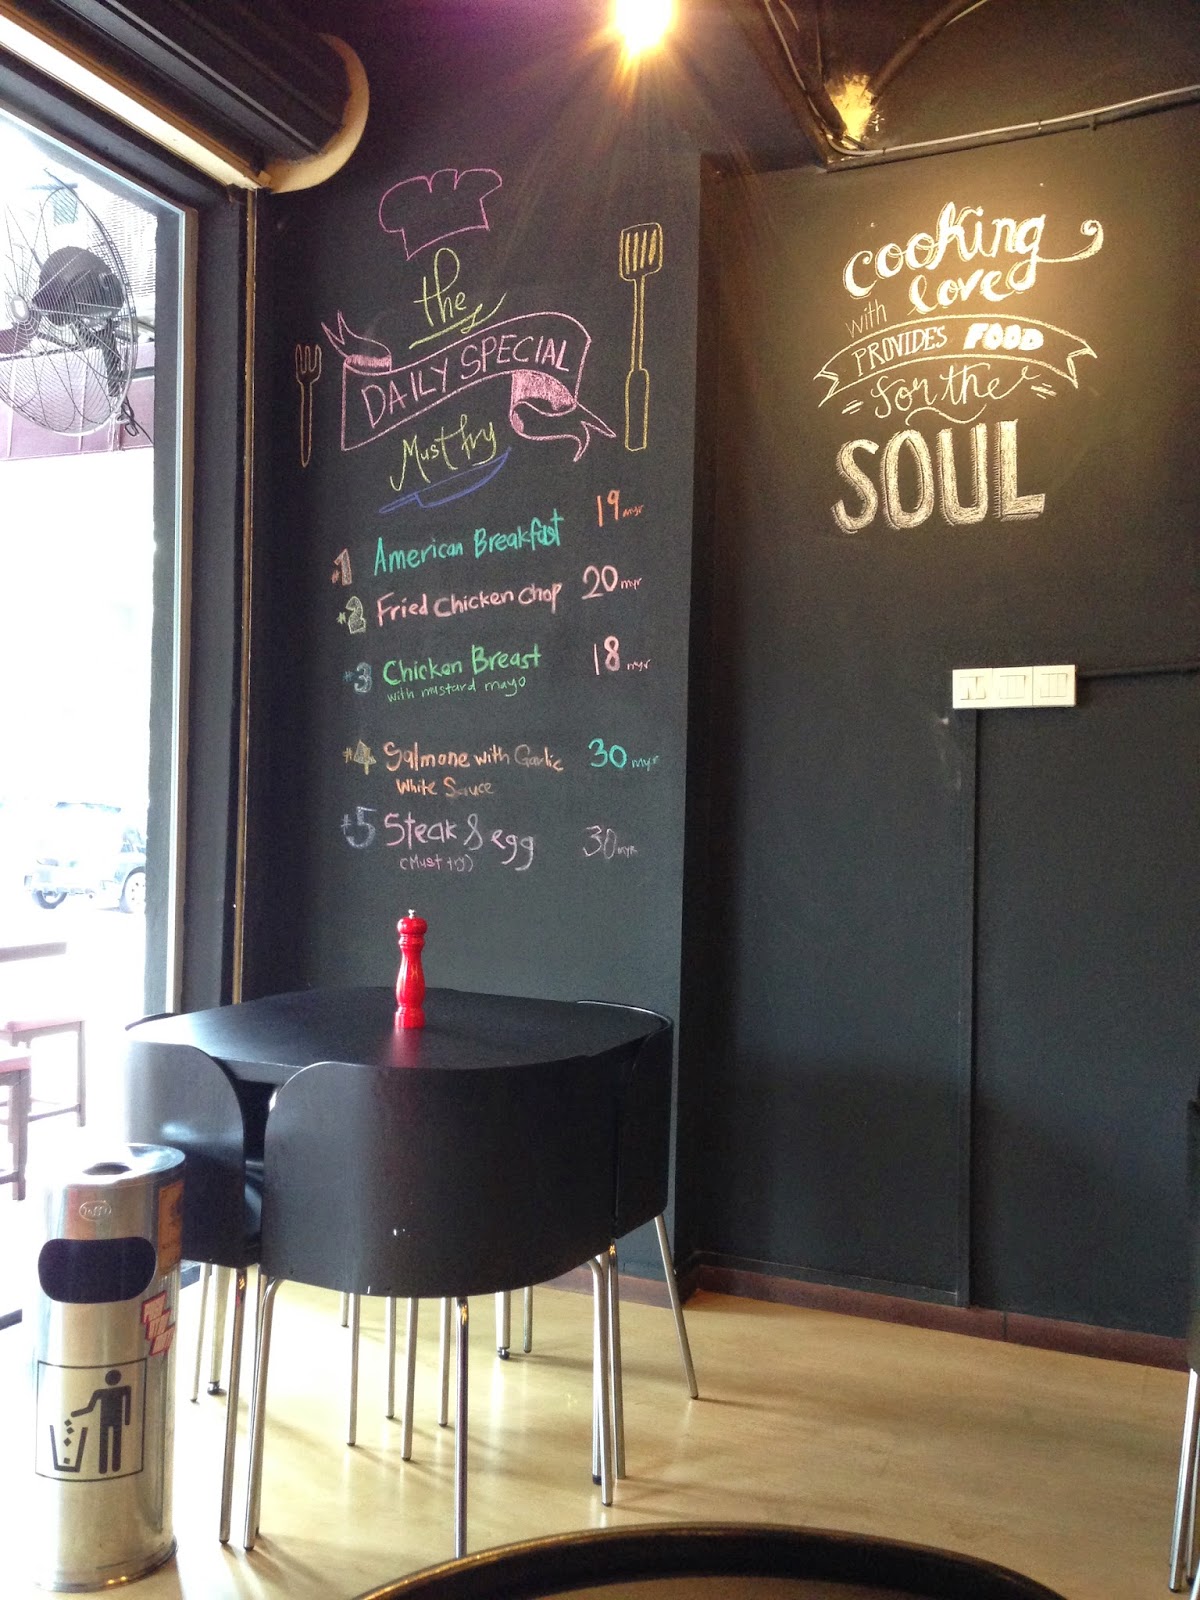 the
DAILY SPECIAL
Must try
#1 American Breakfast 19 myr
#2 Fried Chicken Chop 20 myr
#3 Chicken Breast 18 myr
with mustard mayo
#4 Salmone with Garlic 30 myr
White Sauce
#5 Steak & egg 30 myr
(Must try)
cooking
with love
PROVIDES FOOD
for the
SOUL